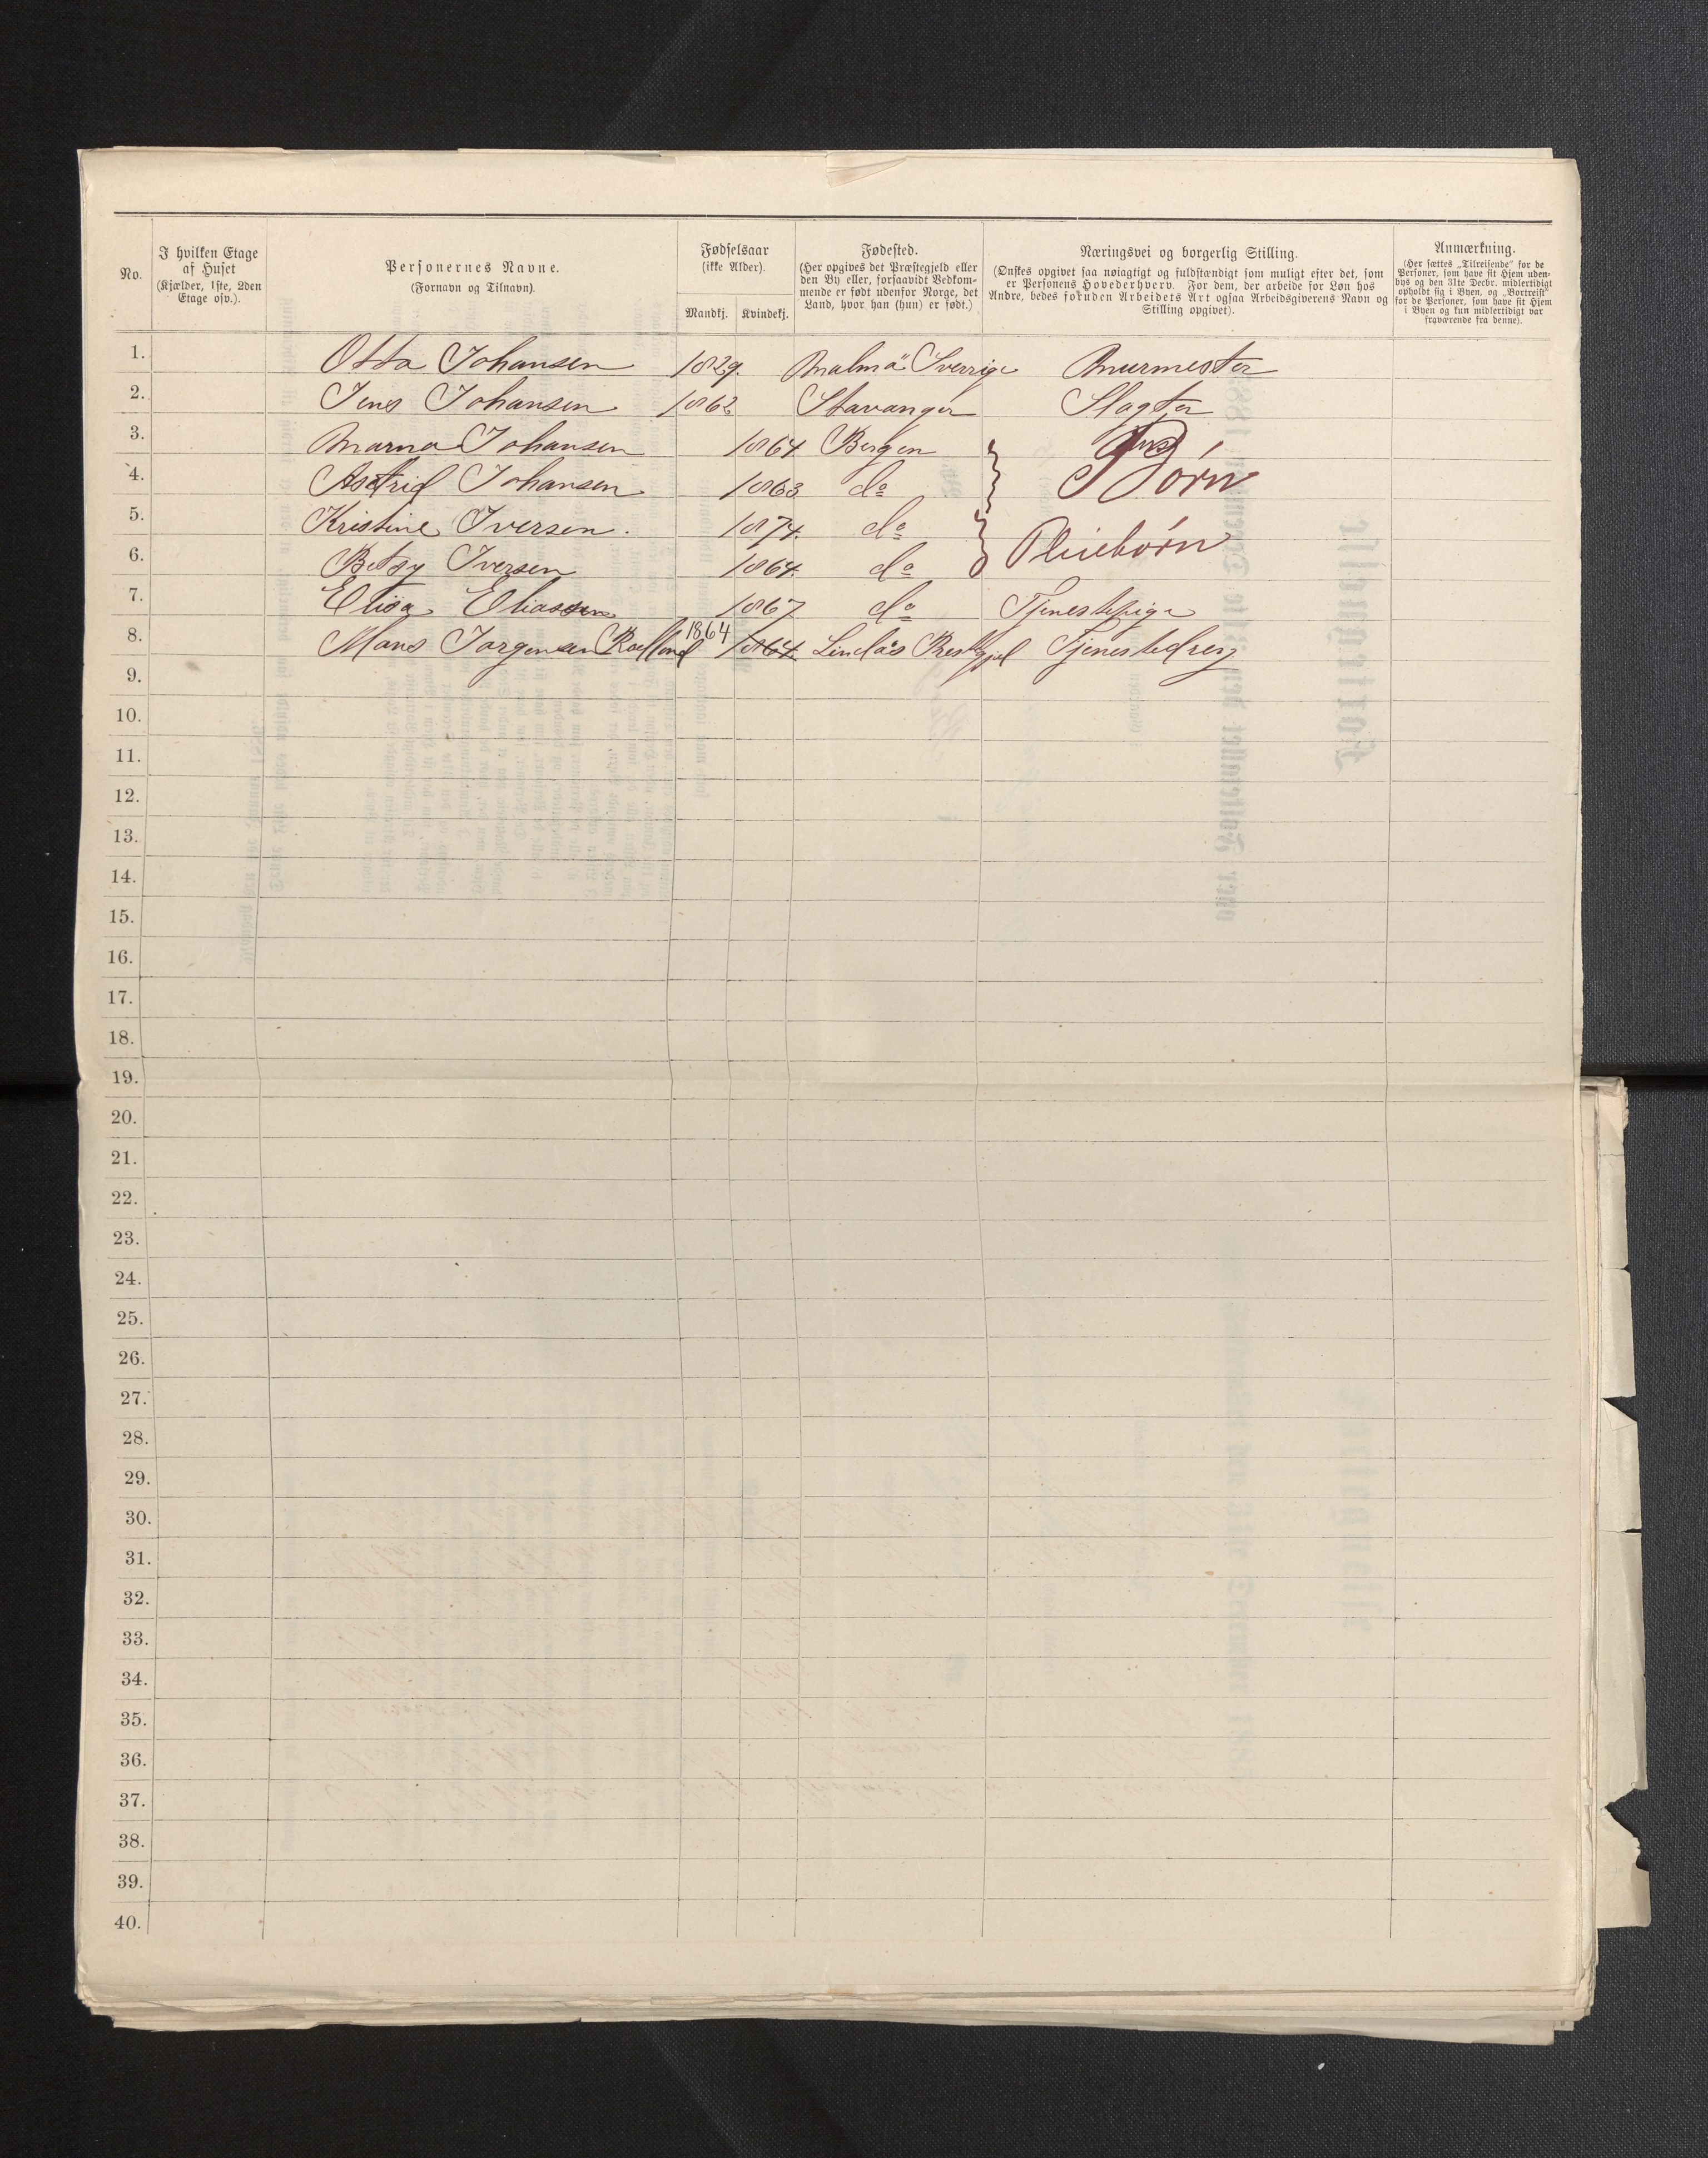 No.
I hvilken Etage af Huset (Kjælder, 1ste, 2den Etage osv.).
Personernes Navne. (Fornavn og Tilnavn).
Fødselsaar (ikke Alder).
Mandkj. Kvindekj.
Fødested. (Her opgives det Præstegjeld eller den By eller, forsaavidt Vedkommende er født udenfor Norge, det Land, hvor han (hun) er født.)
Næringsvei og borgerlig Stilling. (Ønskes opgivet saa nøiagtigt og fuldstændigt som muligt efter det, som er Personens Hovederhverv. For dem, der arbeide for Løn hos Andre, bedes foruden Arbeidets Art ogsaa Arbeidsgiverens Navn og Stilling opgivet).
Anmærkning. (Her sættes „Tilreisende“ for de Personer, som have sit Hjem udenbys og den 31te Decbr. midlertidigt opholdt sig i Byen, og „Bortreist“ for de Personer, som have sit Hjem i Byen og kun midlertidigt var fraværende fra denne).
1. Otto Johansen 1829. Malmø Sverrige Murmester
2. Jens Johansen 1862 Stavanger Slagter
3. Marna Johansen 1864 Bergen
4. Astrid Johansen 1863 do Børn
5. Kristine Iversen. 1874. do
6. Betsy Iversen 1864. do Pleiebørn
7. Elisa Eliassen 1867 do Tjenestepige
8. Mons Jorgensen 1864 1864. Lindås Prestgjel Tjenestedreng
9.
10.
11.
12.
13.
14.
15.
16.
17.
18.
19.
20.
21.
22.
23.
24.
25.
26.
27.
28.
29.
30.
31.
32.
33.
34.
35.
36.
37.
38.
39.
40.